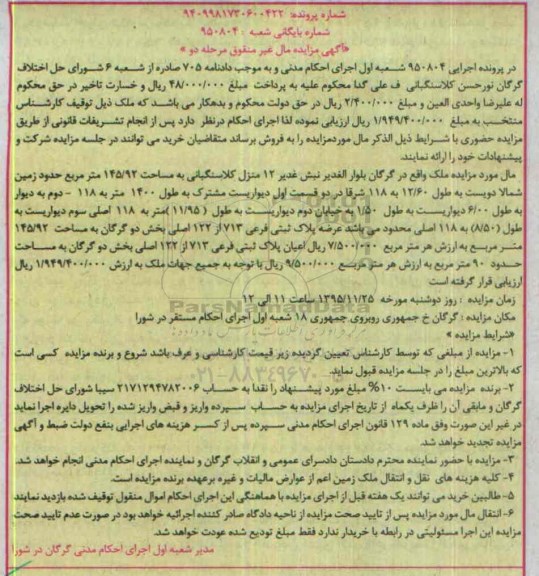 شماره پرونده: ۹۴۰۹۹۸۱۷۳۰۶۰۰۴۲۲
شماره بایگانی شعبه : ۹۵۰۸۰۴
«آگهی مزایده مال غیر منقول مرحله دو »
در پرونده اجرایی ۹۵۰۸۰۴ شعبه اول اجرای احکام مدنی و به موجب دادنامه ۷۰۵ صادره از شعبه ۶ شورای حل اختلاف
گرگان نورحسن کلاسنگیانی ف علی گدا محکوم علیه به پرداخت مبلغ ۴۸/۰۰۰/۰۰۰ ریال و خسارت تاخیر در حق محکوم
له علیرضا واحدی العین و مبلغ ۲/۴۰۰/۰۰۰ ریال در حق دولت محکوم و بدهکار می باشد که ملک ذیل توقیف کارشناس
منتخب به مبلغ ۱/۹۴۹/۴۰۰/۰۰۰ ریال ارزیابی نموده لذا اجرای احکام درنظر دارد پس از انجام تشریفات قانونی از طریق
مزایده حضوری با شرایط ذیل الذکر مال موردمزایده را به فروش برساند متقاضیان خرید می توانند در جلسه مزایده شرکت و
پیشنهادات خود را ارائه نمایند.
مال مورد مزایده ملک واقع در گرگان بلوار الغدیر نبش غدیر ۱۲ منزل کلاسنگیانی به مساحت ۱۴۵/۹۲ متر مربع حدود زمین
شمالا دویست به طول ۱۲/۶۰ به ۱۱۸ شرقا در دو قسمت اول دیواریست مشترک به طول ۱۴۰۰ متر به ۱۱۸ - دوم به دیوار
به طول ۶/۰۰ دیواریست به طول ۱/۵۰ به خیابان دوم دیواریست به طول ( ۱۱/۹۵ )متر به ۱۱۸ اصلی سوم دیواریست به
طول (۸/۵۰) به ۱۱۸ اصلی محدود می باشد عرصه پلاک ثبتی فرعی ۷۱۳ از ۱۲۲ اصلی بخش دو گرگان به مساحت ۱۴۵/۹۲
متر مربع به ارزش هر متر مربع ۷/۵۰۰/۰۰۰ ریال اعیان پلاک ثبتی فرعی ۷۱۳ از ۱۳۲ اصلی بخش دو گرگان به مساحت
حدود ۹۰ متر مربع به ارزش هر متر مربع ۹/۵۰۰/۰۰۰ ریال با توجه به جمیع جهات ملک به ارزش ۱/۹۴۹/۴۰۰/۰۰۰ ریال
ارزیابی قرار گرفته است
زمان مزایده : روز دوشنبه مورخه ۱۳۹۵/۱۱/۲۵ ساعت ۱۱ الی ۱۲
مکان مزایده : گرگان خ جمهوری روبروی جمهوری ۱۸ شعبه اول اجرای احکام مستقر در شورا
«شرایط مزایده »
۱- مزایده از مبلغی که توسط کارشناس تعیین گردیده زیر قیمت کارشناسی و عرف باشد شروع و برنده مزایده کسی است
که بالاترین مبلغ را در جلسه مزایده قبول نماید.
۲- برنده مزایده می بایست ۱۰% مبلغ مورد پیشنهاد را نقدا به حساب ۲۱۷۱۲۹۴۷۸۲۰۰۶ سیبا شورای حل اختلاف
گرگان و مابقی آن را ظرف یکماه از تاریخ اجرای مزایده به حساب سپرده واریز و قبض واریز شده را تحویل دایره اجرا نماید
در غیر این صورت وفق ماده ۱۲۹ قانون اجرای احکام مدنی سپرده پس از کسر هزینه های اجرایی بنفع دولت ضبط و آگهی
مزایده تجدید خواهد شد.
۳- مزایده با حضور نماینده محترم دادستان دادسرای عمومی و انقلاب گرگان و نماینده اجرای احکام مدنی انجام خواهد شد.
۴- کلیه هزینه های نقل و انتقال ملک زمین اعم از عوارض مالیات و غیره برعهده برنده مزایده است.
۵- طالبین خرید می توانند یک هفته قبل از اجرای مزایده با هماهنگی این اجرای احکام اموال منقول توقیف شده بازدید نمایند
۶- انتقال مال مورد مزایده پس از تایید صحت مزایده از ناحیه دادگاه صادر کننده اجرائیه خواهد بود در صورت عدم تایید صحت
مزایده این اجرا مسئولیتی در رابطه با خریدار ندارد فقط مبلغ تودیع شده عودت خواهد شد.
مدیر شعبه اول اجرای احکام مدنی گرگان در شورا
ParsNamadData
۰۲۱-۸۸۳۴۹۶۷۰